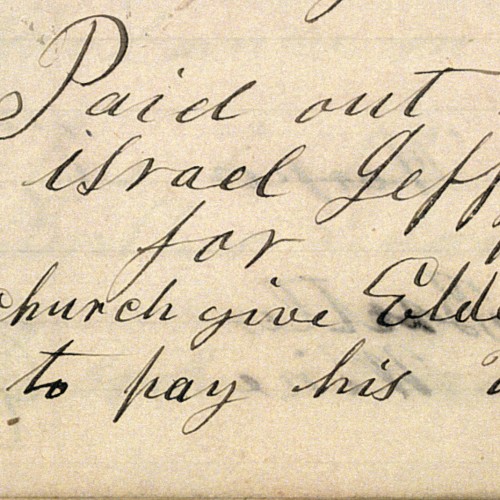 Paid out
israel Geff
for
church give Elde
to pay his